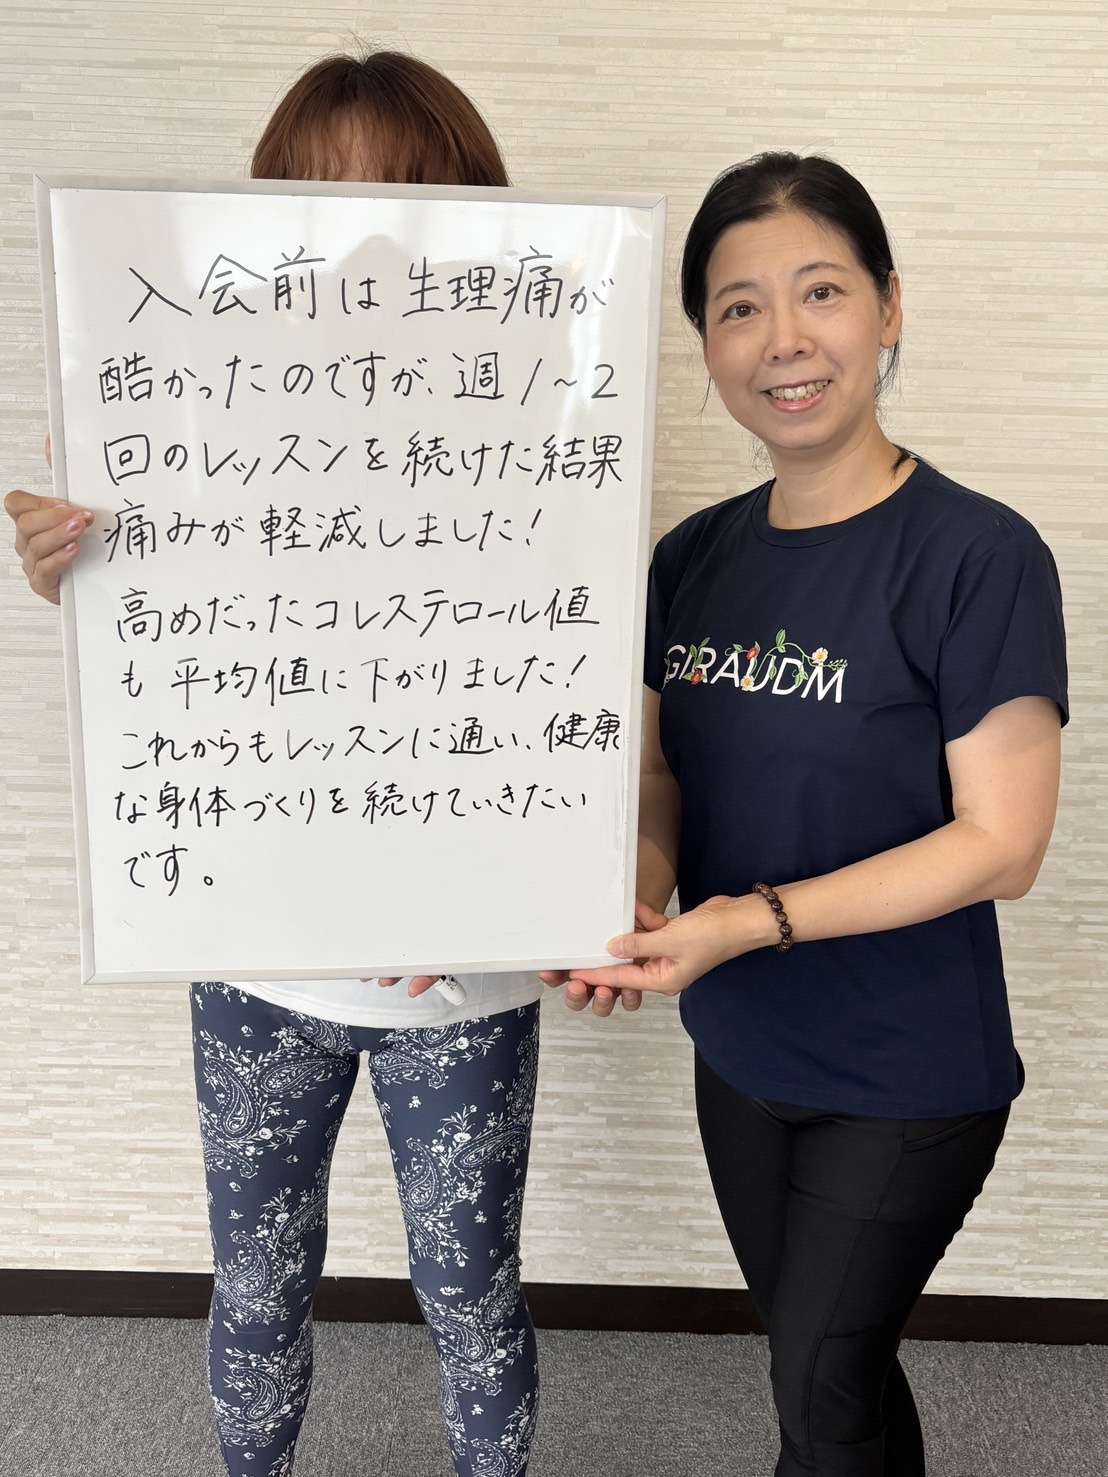 入会前は生理痛が
酷かったのですが、週1~2
回のレッスンを続けた結果
痛みが軽減しました!
高めだったコレステロール値
も平均値に下がりました!
これからもレッスンに通い、健康
な身体づくりを続けていきたい
です。
GIRAUDM